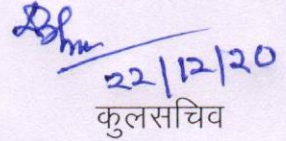 22/12/20
कुलसचिव